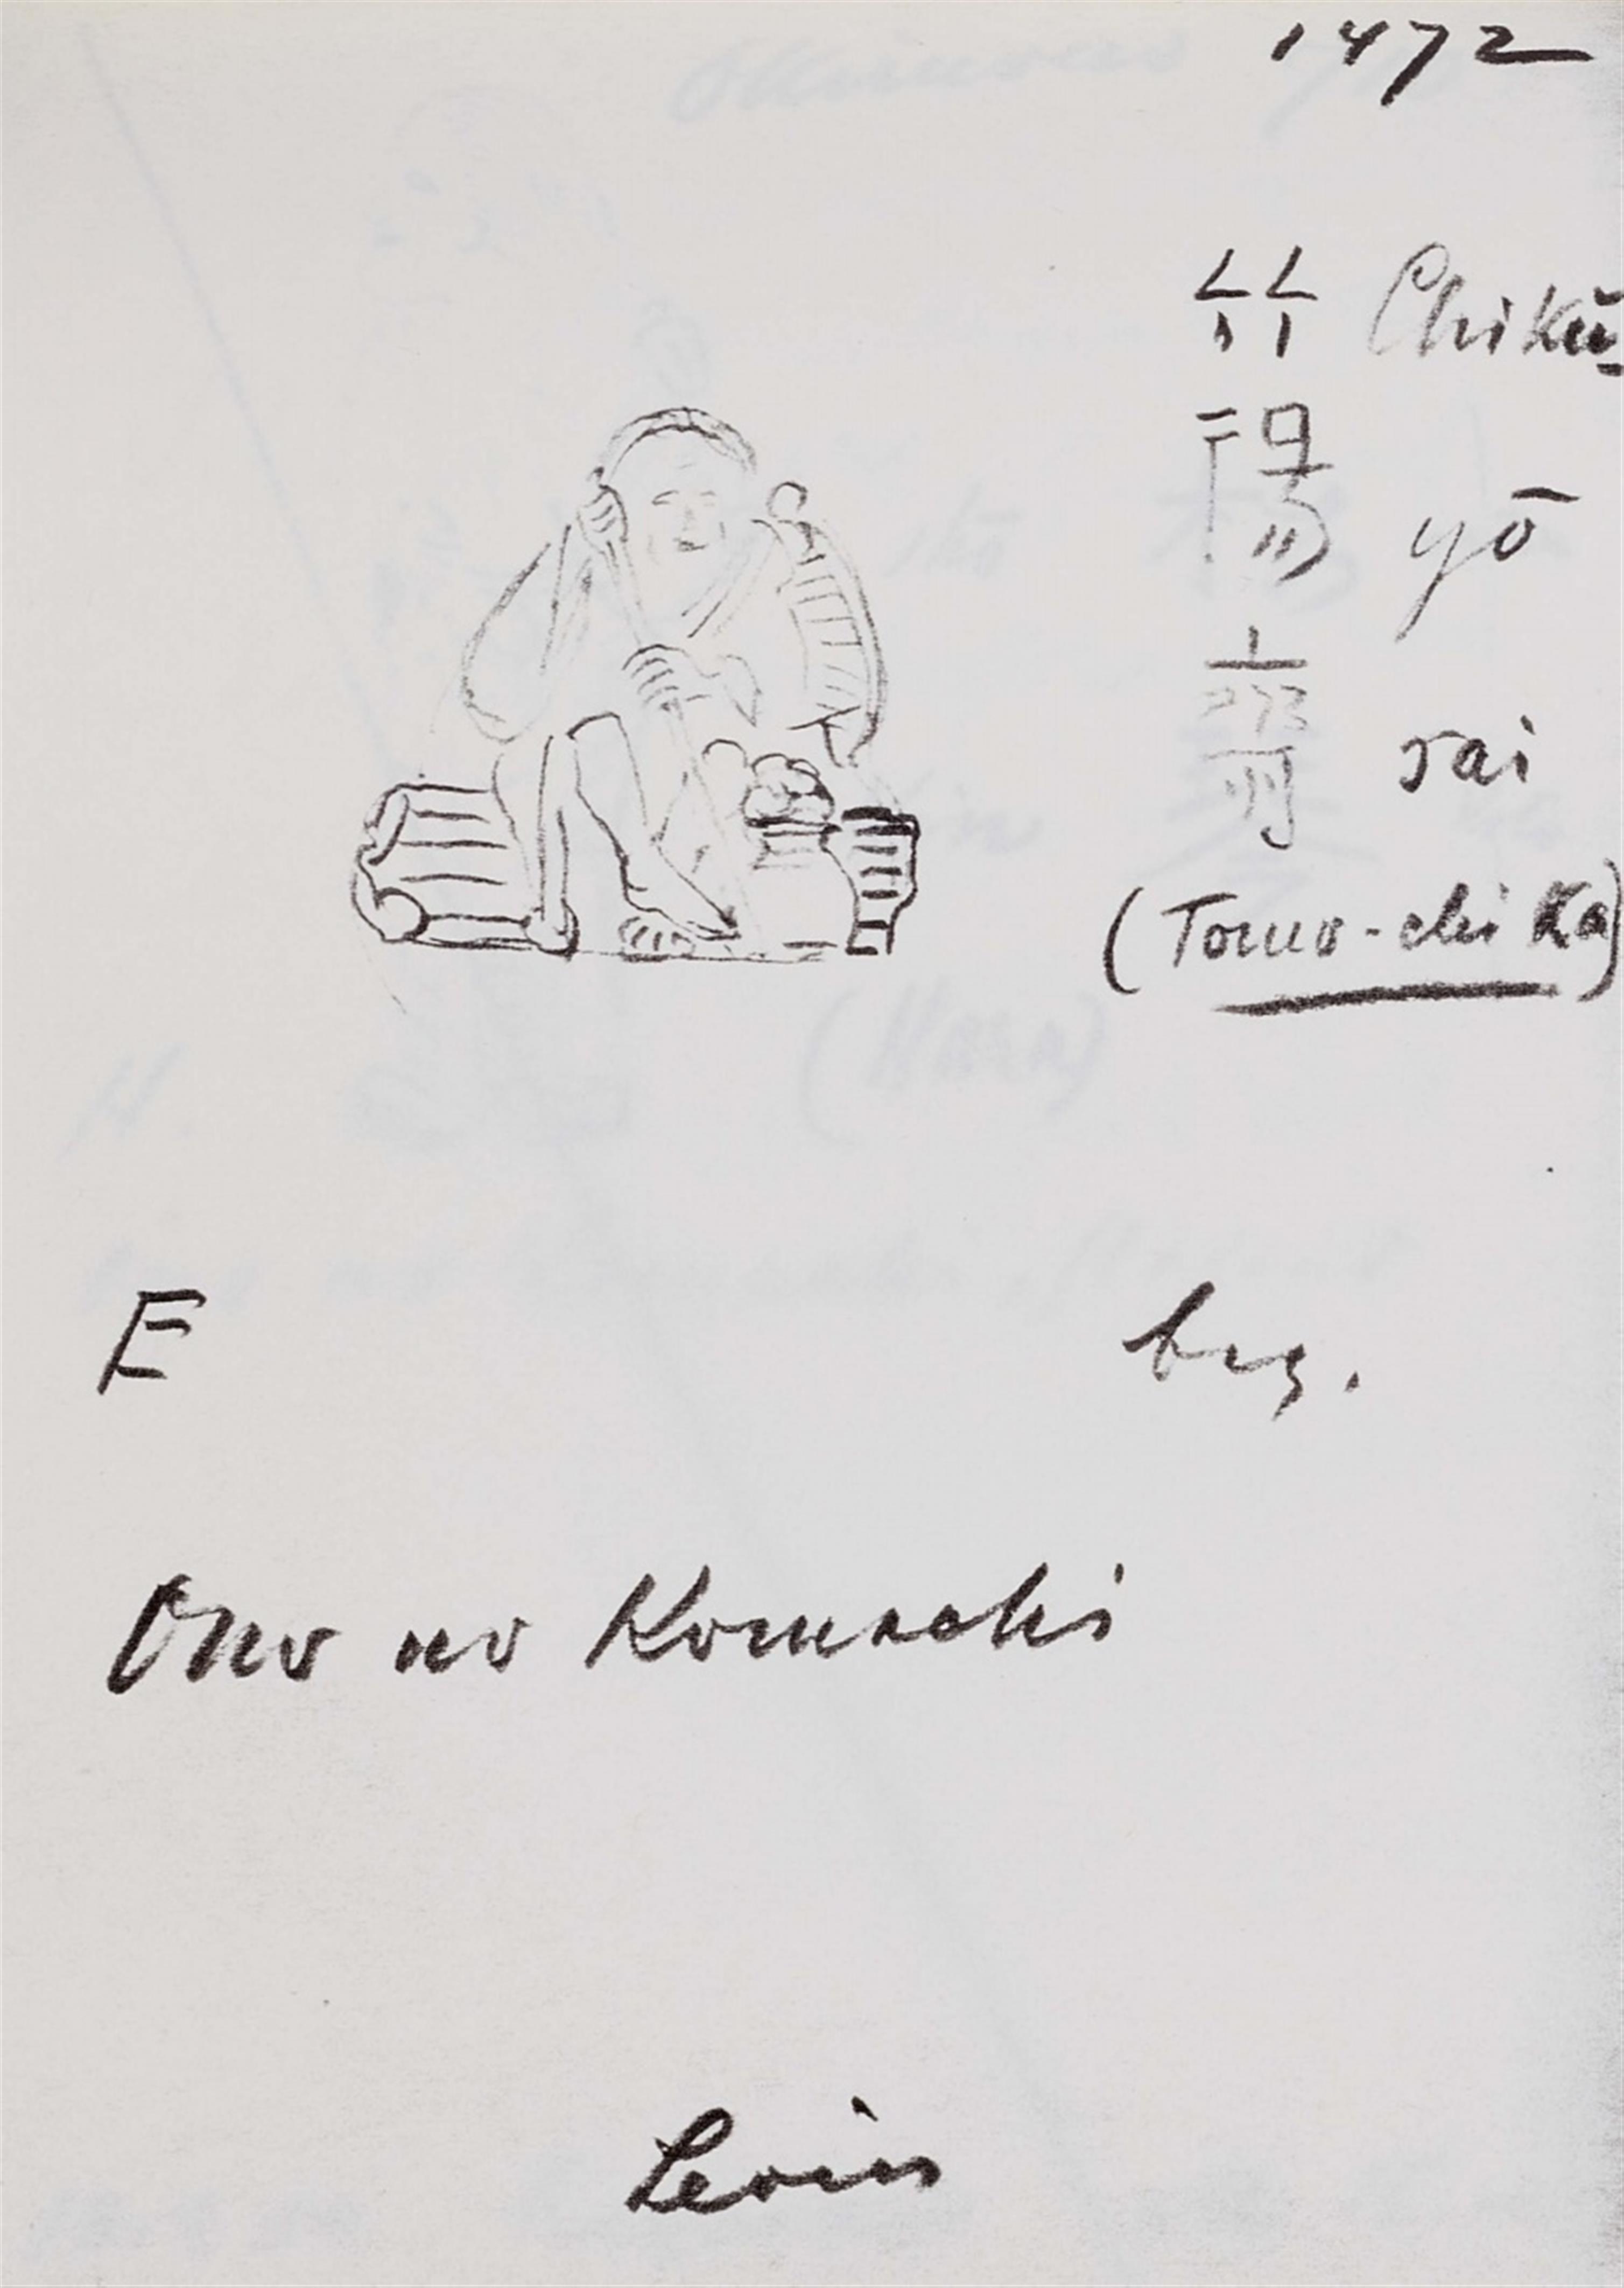 1472
竹 Chikŭ
陽 yō
齋 sai
(Tomo-chika)
E bez.
Ono no Komachi
Levin